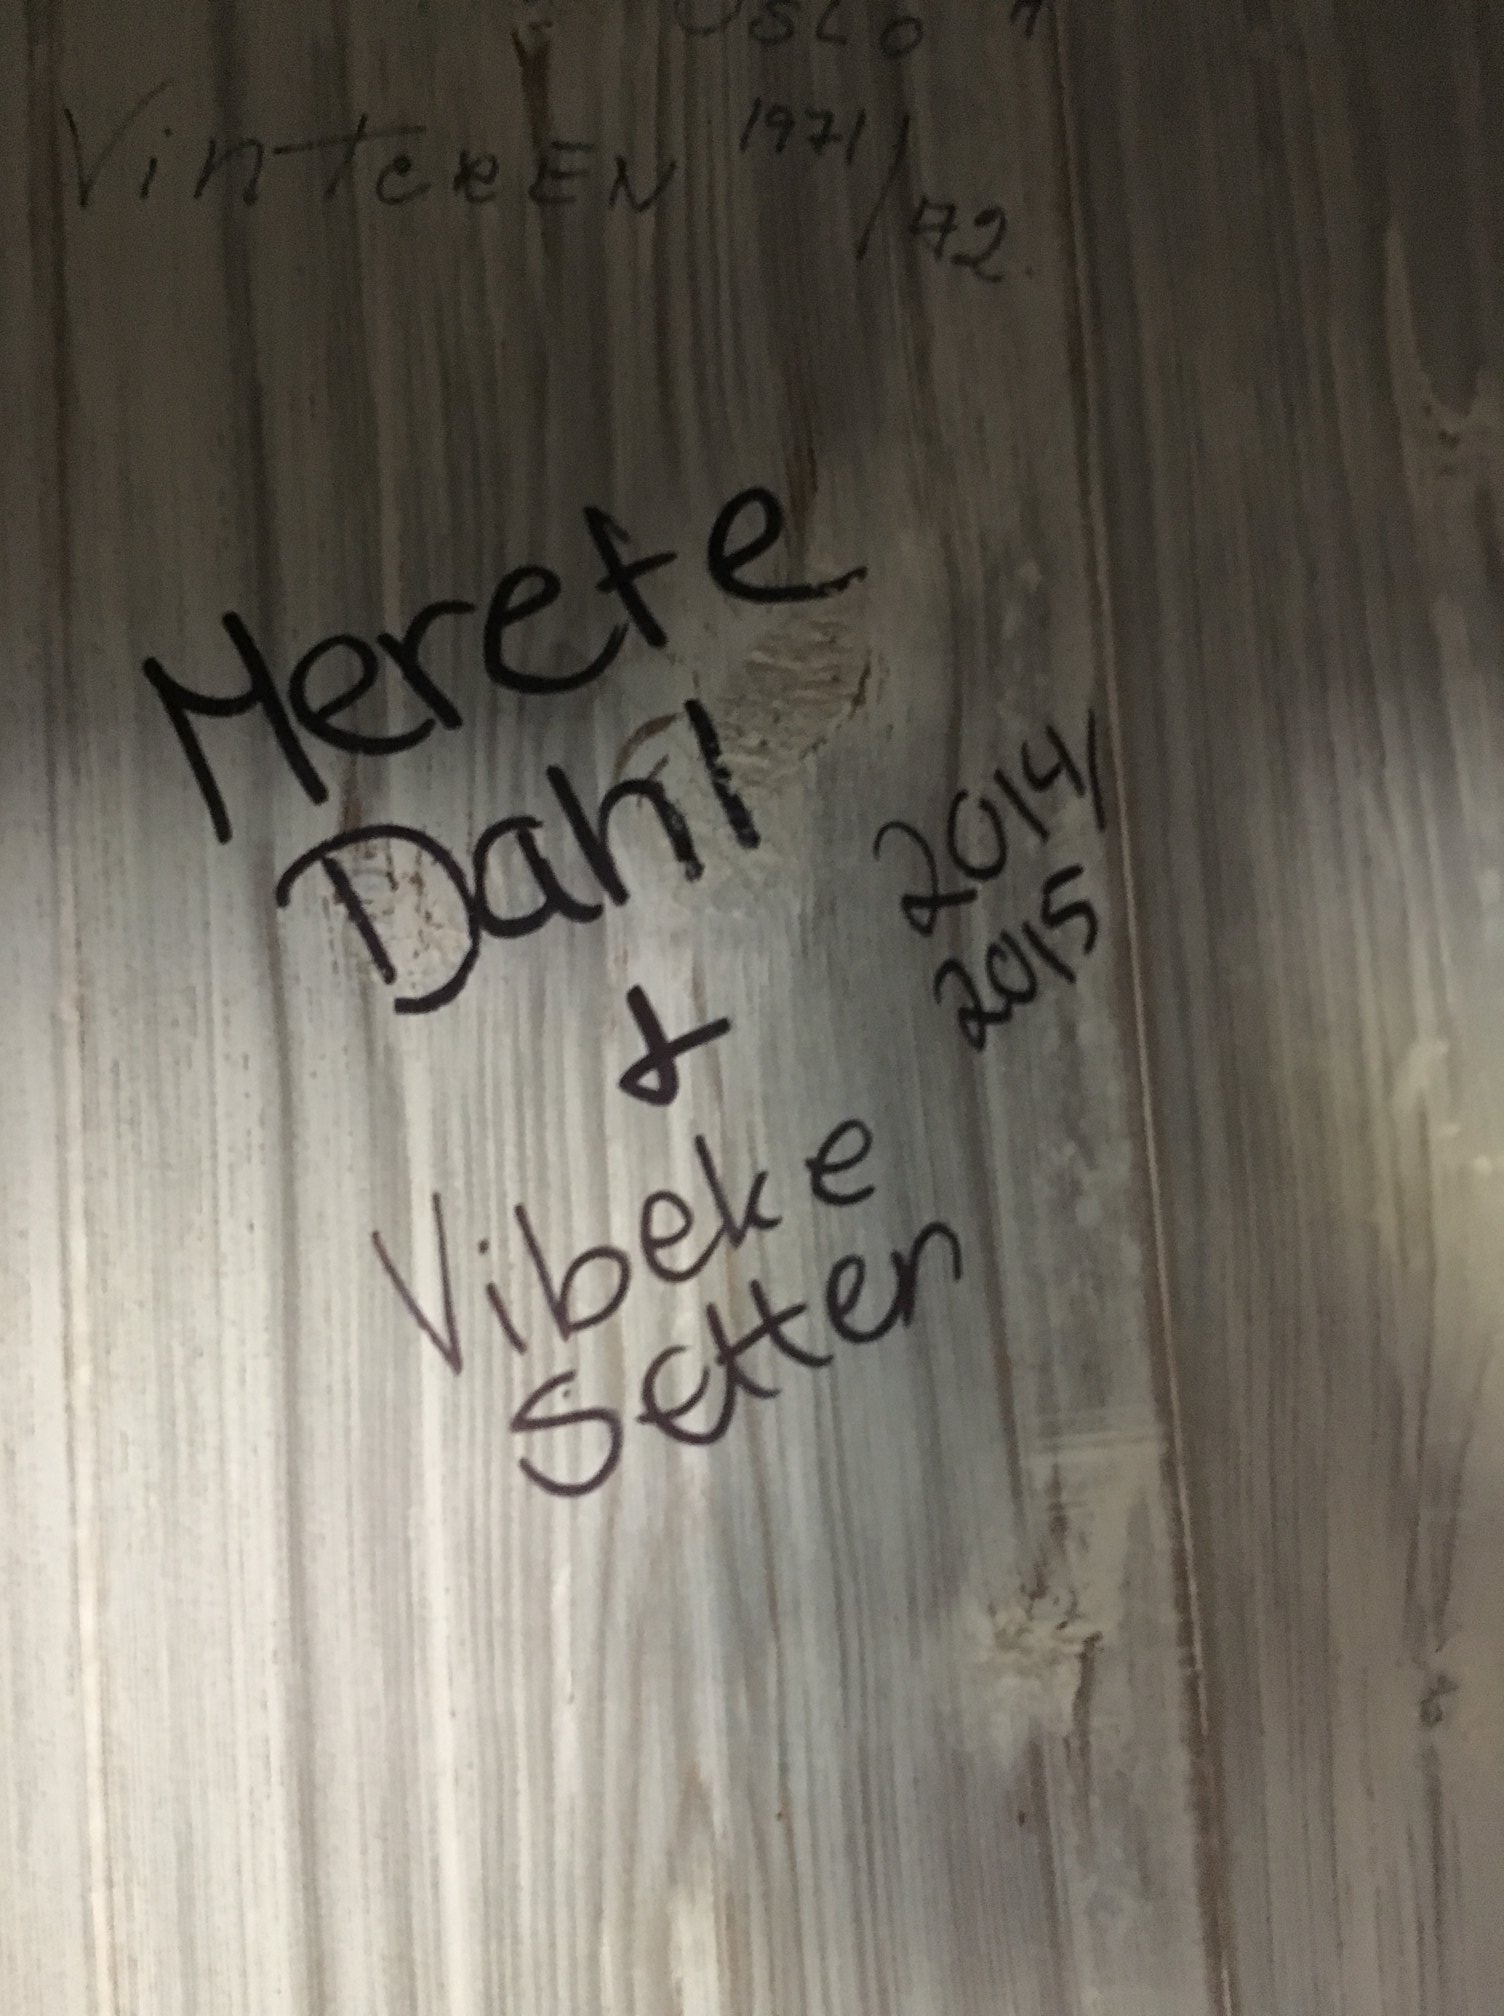 OSLO 7
VinTEREN 1971/72.
Merete
Dahl
2014/
2015
+
Vibeke
Setten